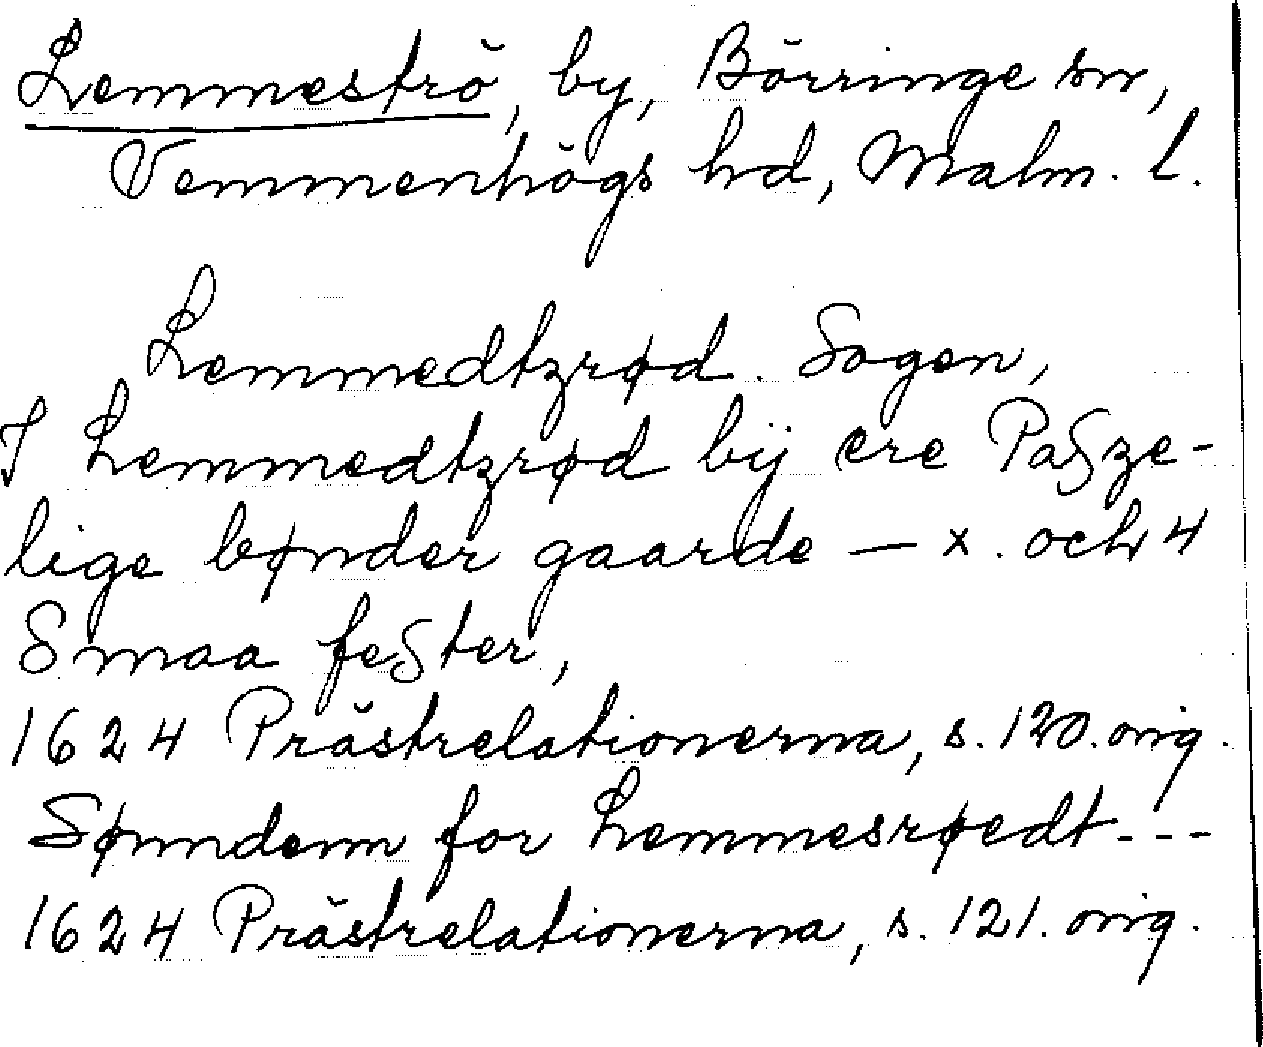 Lemmeströ, by, Börringe sn,
Vemmenhögs hd, Malm. l.
Lemmedtzrød. Sogen,
I Lemmedtzrød bÿ ere PaSze-
lige bønder gaarde — x. och 4
Smaa feSter,
1624 Prästrelationerna, s. 120. orig.
Sønndenn for Lemmesrøedt---
1624 Prästrelationerna, s. 121. orig.